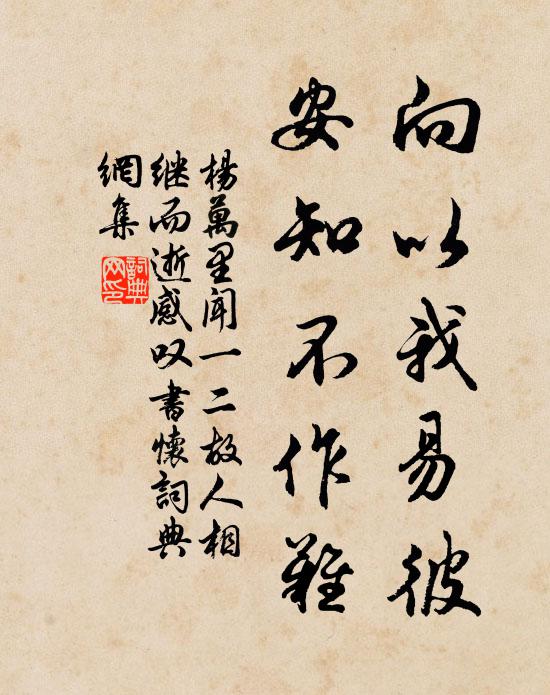 向以我易彼
安知不作難
楊萬里聞一二故人相
继而逝感叹書懷詞典
網集
詞典網印